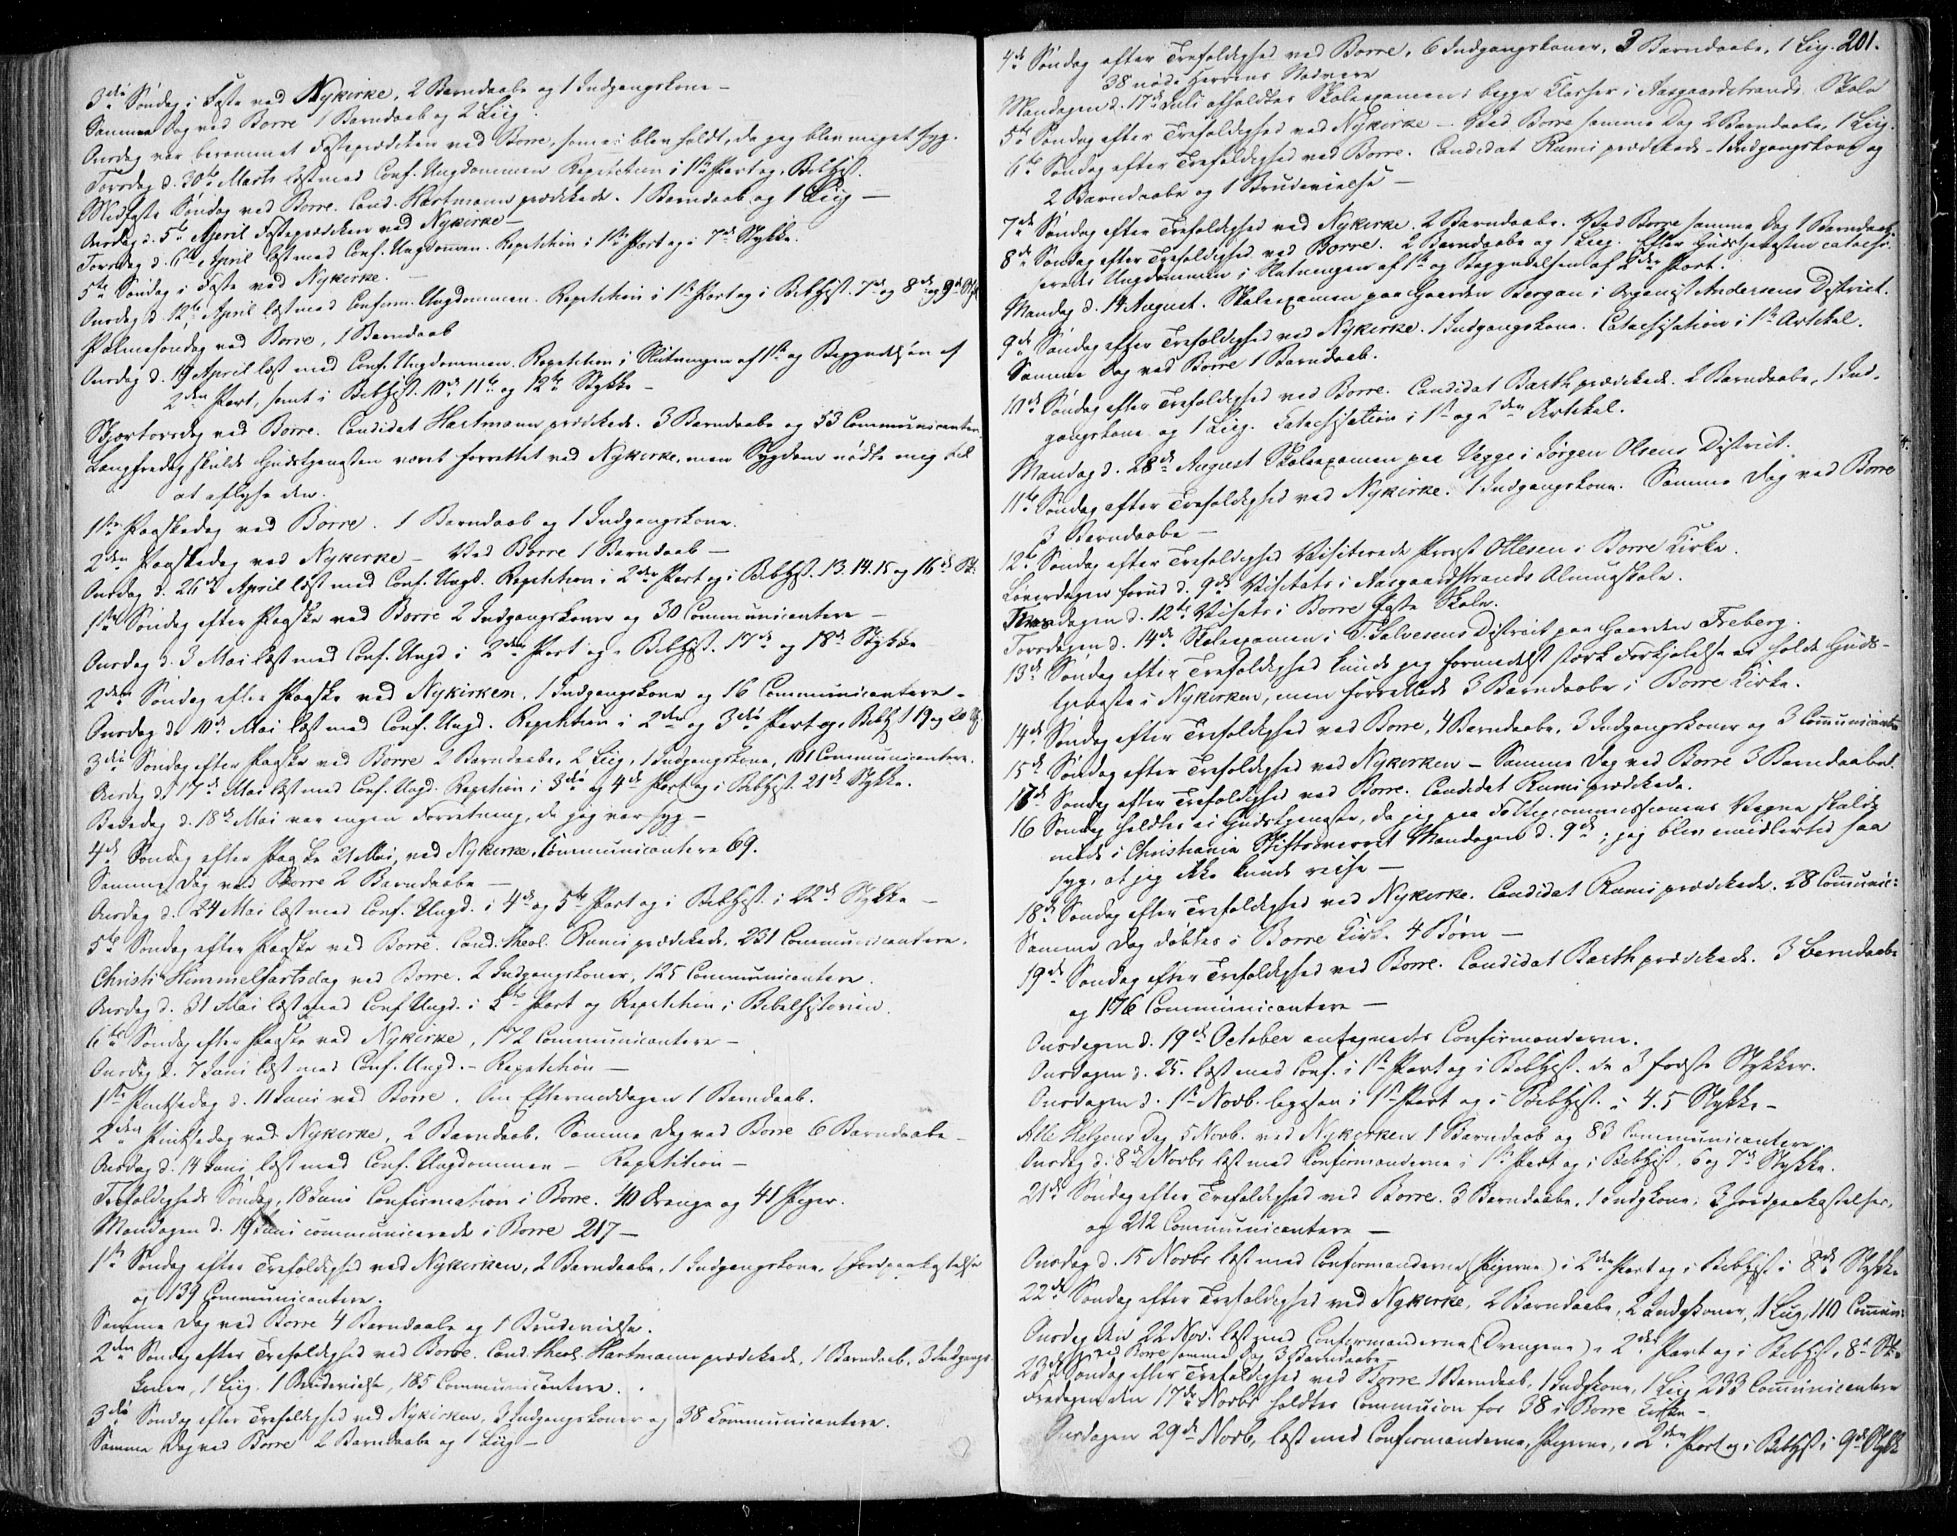 3die Søndag i Faste ved Nykirke, 2 Barndaabe og 1 Indgangskone –
Samme Dag ved Borre 1 Barndaab og 2 Liig.
Onsdag var berammet Fasteprædiken ved Borre, som ei blev holdt, da jeg blev meget syg.
Torsdag d. 30te Marts læst med Conf. Ungdommen Repetition i 1ste Part og i Bibhist.
Midfaste Søndag ved Borre. Cand. Hartmann prædikede. 1 Barndaab og 1 Liig –
Onsdag d. 5te April Fasteprædiken ved Nykirke –
Torsdag d. 6te April læst med Conf. Ungdommen. Repetition i 1ste Part og i 7de Stykke.
5te Søndag i Faste ved Nykirke. –
Onsdag d. 12te April læst med Conform. Ungdommen. Repetition i 1ste Part og i Bibhist. 7de og 8de og 9de St
Palmesøndag ved Borre, 1 Barndaab
Onsdag d. 19 April læst med Conf. Ungdommen. Repetition i Slutningen af 1ste og Begyndelsen af
2den Part, samt i Bibhist. 10de 11te og 12te Stykke –
Skjærtorsdag ved Borre. Candidat Hartmann prædikede. 3 Barndaabe og 53 Communicanter.
Langfredag skulde Gudstjenesten været forrettet ved Nykirke, men Sygdom nødte mig til
at aflyse den.
1ste Paaskedag ved Borre. 1 Barndaab og 1 Indgangskone.
2den Paaskedag ved Nykirke – Ved Borre 1 Barndaab –
Onsdag d. 26de April læst med Conf. Ungd. Repetition i 2den Part og i Bibhist. 13. 14. 15 og 16de St.
1ste Søndag efter Paaske ved Borre 2 Indgangskoner og 30 Communicantere –
Onsdag d. 3 Mai læst med Conf. Ungd i 2den Part og i Bibhist. 17de og 18de Stykke
2den Søndag efter Paaske ved Nykirken. 1 Indgangskone og 16 Communicantere –
Onsdag d. 10de Mai læst med Conf. Ungd. Repetition i 2den og 3die Part og i Bibhist 19 og 20 St.
3die Søndag efter Paaske ved Borre 2 Barndaabe, 2 Liig, 1 Indgangskone, 101 Communicantere.
Onsdag d. 17de Mai læst med Conf. Ungd. Repetition i 3die og 4de Part og i Bibhist. 21de Stykke.
Bededag d. 18de Mai var ingen Forretning, da jeg var syg –
4de Søndag efter Paaske 21 Mai, ved Nykirke, Communicantere 69.
Samme Dag ved Borre 2 Barndaabe –
Onsdag d. 24 Mai læst med Conf. Ungd. i 4de og 5te Part og i Bibhist. i 22de Stykke –
5te Søndag efter Paaske ved Borre. Cand. theol. Rumi prædikede, 231 Communicantere.
Christi Himmelfartsdag ved Borre. 2 Indgangskoner, 125 Communicantere.
Onsdag d. 31 Mai læst med Conf Ungd. i 5te Part og Repetition i Bibelhistorien.
6te Søndag efter Paaske ved Nykirke, 172 Communicantere –
Onsdag d. 7 Juni læst med Conf. Ungd. – Repetition –
1ste Pintsedag d. 11 Juni ved Borre. Om Eftermiddagen 1 Barndaab.
2den Pintsedag ved Nykirke, 2 Barndaab. Samme Dag ved Borre 6 Barndaabe –
Onsdag d. 14 Juni læst med Conf. Ungdommen – Repetition –
Trefoldigheds Søndag, 18 Juni Confirmation i Borre. 40 Drenge og 41 Piger.
Mandagen d. 19 Juni communicerede i Borre 217 –
1ste Søndag efter Trefoldighed ved Nykirken, 2 Barndaabe, 1 Indgangskone, 1 Jordpaakastelse
og 139 Communicantere.
Samme Dag ved Borre 4 Barndaabe og 1 Brudevielse.
2den Søndag efter Trefoldighed ved Borre. Cand. theol. Hartmann prædikede, 1 Barndaab, 3 Indgangs-
koner, 1 Liig. 1 Brudevielse, 185 Communicantere.
3die Søndag efter Trefoldighed ved Nykirken, 3 Indgangskoner og 38 Communicantere.
Samme Dag ved Borre 2 Barndaabe og 1 Liig –
201.
4de Søndag efter Trefoldighed ved Borre, 6 Indgangskoner, 3 Barndaabe, 1 Liig.
38 nøde Herrens Nadvere
Mandagen d. 17de Juli afholdtes Skoleexamen i begge Classer i Aasgaardstrands Skole
5te Søndag efter Trefoldighed ved Nykirke – Ved Borre samme Dag 2 Barndaabe, 1 Liig.
6te Søndag efter Trefoldighed ved Borre. Candidat Rumi prædikede – 1 Indgangskone og
2 Barndaabe og 1 Brudevielse –
7de Søndag efter Trefoldighed ved Nykirke. 2 Barndaabe. Ved Borre samme Dag 1 Barndaab.
8de Søndag efter Trefoldighed ved Borre. 2 Barndaabe og 1 Liig. Efter Gudstjenesten catechi-
serede Ungdommen i Slutningen af 1ste og Begyndelsen af 2den Part.
Mandag d. 14 August. Skoleexamen paa Gaarden Bergan i Organist Andersens District.
9de Søndag efter Trefoldighed ved Nykirke. 1 Indgangskone. Catechisation i 1ste Artikel.
Samme Dag ved Borre 1 Barndaab.
10de Søndag efter Trefoldighed ved Borre. Candidat Barth prædikede. 2 Barndaabe, 1 Ind-
gangskone og 1 Liig. Catechisation i 1ste og 2den Artikel.
Mandag d. 28de August Skoleexamen paa i Jørgen Olsens District.
11te Søndag efter Trefoldighed ved Nykirke. 1 Indgangskone. Samme Dag ved Borre
3 Barndaabe –
12te Søndag efter Trefoldighed Visiterede Provst Ottesen i Borre Kirke.
Løverdagen forud d. 9de Visitats i Aasgaardstrands Almueskole.
Tirsdagen d. 12te Visitats i Borre faste Skole.
Torsdagen d. 14de Skoleexamen i T. Halvorsens District paa Gaarden Freberg.
13de Søndag efter Trefoldighed kunde jeg formedelst stærk Forkjølelse ei holde Guds-
tjeneste i Nykirken, men forrettede 3 Barndaabe i Borre Kirke.
14de Søndag efter Trefoldighed ved Borre, 4 Barndaabe, 3 Indgangskoner og 3 Communicanter
15de Søndag efter Trefoldighed ved Nykirken – Samme Dag ved Borre 3 Barndaabe.
17de Søndag efter Trefoldighed ved Borre. Candidat Rumi prædikede.
16 Søndag holdtes ei Gudstjeneste, da jeg paa Fattigcommissionens Vegne skulde
møde i Christiania Stiftsoverret Mandagen d. 9de; jeg blev imidlertid saa
syg, at jeg ikke kunde reise –
18de Søndag efter Trefoldighed ved Nykirke. Candidat Rumi prædikede. 28 Communic:
Samme Dag døbtes i Borre Kirke 4 Børn –
19de Søndag efter Trefoldighed ved Borre. Candidat Barth prædikede. 3 Barndaabe
og 176 Communicantere –
Onsdagen d. 19de October antegnedes Confirmanderne.
Onsdagen d. 25. læst med Conf. i 1ste Part og i Bibhist. de 3 første Stykker.
Onsdagen d. 1ste Novb. ligesaa i 1ste Part og i Bibhist. i 4. 5 Stykke –
Alle Helgens Dag 5 Novb. ved Nykirken 1 Barndaab og 83 Communicantere.
Onsdag d. 8de Novbr læst med Confirmanderne i 1ste Part og i Bibhist. 6 og 7de Stykke.
21de Søndag efter Trefoldighed ved Borre. 3 Barndaabe, 1 Indgkone, 3 Jordpaakastelser,
og 212 Communicantere –
Onsdag d. 15 Novbr læst med Confirmanderne (Pigerne) i 2den Part og i Bibhist. i 8de Stykke
22de Søndag efter Trefoldighed ved Nykirke, 2 Barndaabe, 2 Indgkoner, 1 Liig, 110 Commun:
ved Borre samme Dag 3 Barndaabe –
Onsdag den 22 Nov. læst med Confirmanderne (Drengene) i 2den Part og i Bibhist. 8de St.
23de Søndag efter Trefoldighed ved Borre 1 Barndaab, 1 Indgkone, 1 Liig 233 Communicantere
Fredagen den 17de Novbr holdtes Communion for 38 i Borre Kirke –
Onsdagen 29de Novb. læst med Confirmanderne, Pigerne, i 2den Part og i Bibhist i 9de Stykke